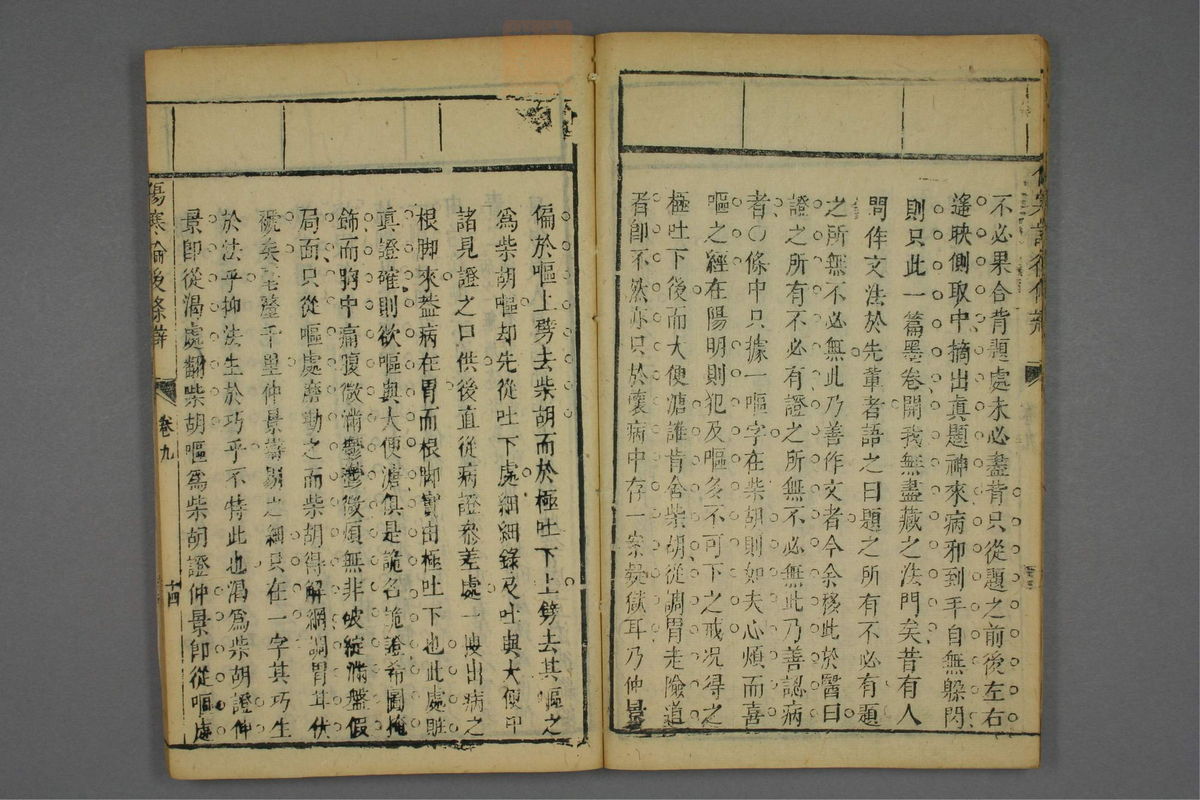 不必果合背題處未必盡背只從題之前後左右
遙映側取中摘出真題神來病邪到手自無躲閃
則只此一篇墨卷開我無盡藏之法門矣昔有人
問作文法於先輩者語之曰題之所有不必有題
之所無不必無此乃善作文者今余移此於醫曰
證之所有不必有證之所無不必無此乃善認病
者〇條中只據一嘔字在柴胡則如夫心煩而喜
嘔之經在陽明則犯及嘔多不可下之戒况得之
極吐下後而大便溏誰肯舍柴胡從調胃走險道
者即不然亦只於壞病中存一案疑獄耳乃仲景
偏於嘔上劈去柴胡而於極吐下上劈去其嘔之
爲柴胡嘔却先從吐下處細細錄及吐與大便
諸見證之口供後直從病證參差處一搜出病之
根脚來葢病在胃而根脚實由極吐下也此處賍
真證確則欲嘔與大便溏俱是詭名詭證希圖掩
飾而胸中痛腹微滿鬱鬱微煩無非破綻滿盤假
局面只從嘔處磨勘之而柴胡得解網調胃耳伏
矣毫釐千里仲景之細只在一字其巧生
於法乎抑法生於巧乎不特此也渴爲柴胡證仲
景即從渴處翻柴胡嘔爲柴胡證仲景即從嘔處
傷寒論後條辨
卷九
十四